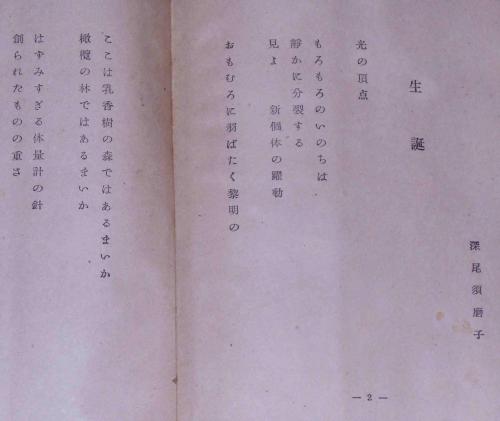 生誕
深尾須磨子
光の頂点
もろもろのいのちは
静かに分裂する
見よ　新個体の躍動
おもむろに羽ばたく黎明の
ここは乳香樹の森ではあるまいか
橄欖の林ではあるまいか
はずみすぎる体量計の針
創られたものの重さ
— 2 —